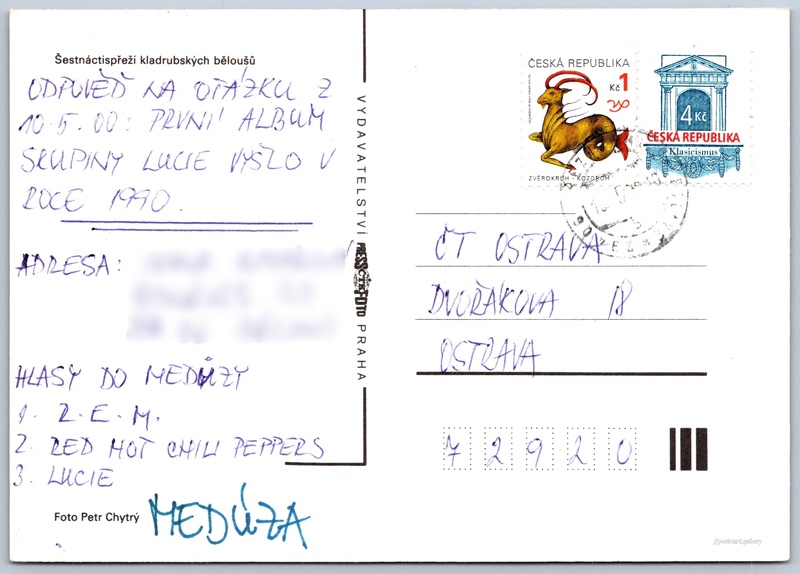 Šestnáctispřeží kladrubských běloušů
ODPOVĚĎ NA OTÁZKU Z
10.5.00: PRVNÍ ALBUM
SKUPINY LUCIE VYŠLO V
ROCE 1990.
ADRESA:
HLASY DO MEDŮZY
1. R.E.M.
2. RED HOT CHILI PEPPERS
3. LUCIE
Foto Petr Chytrý
MEDÚZA
VYDAVATELSTVÍ PRESSFOTO PRAHA
ČESKÁ REPUBLIKA
1 Kč
ZVĚROKRUH - KOZOROH
4 Kč
ČESKÁ REPUBLIKA
Klasicismus
ČT OSTRAVA
DVOŘÁKOVA 18
OSTRAVA
72920
postcard.gallery